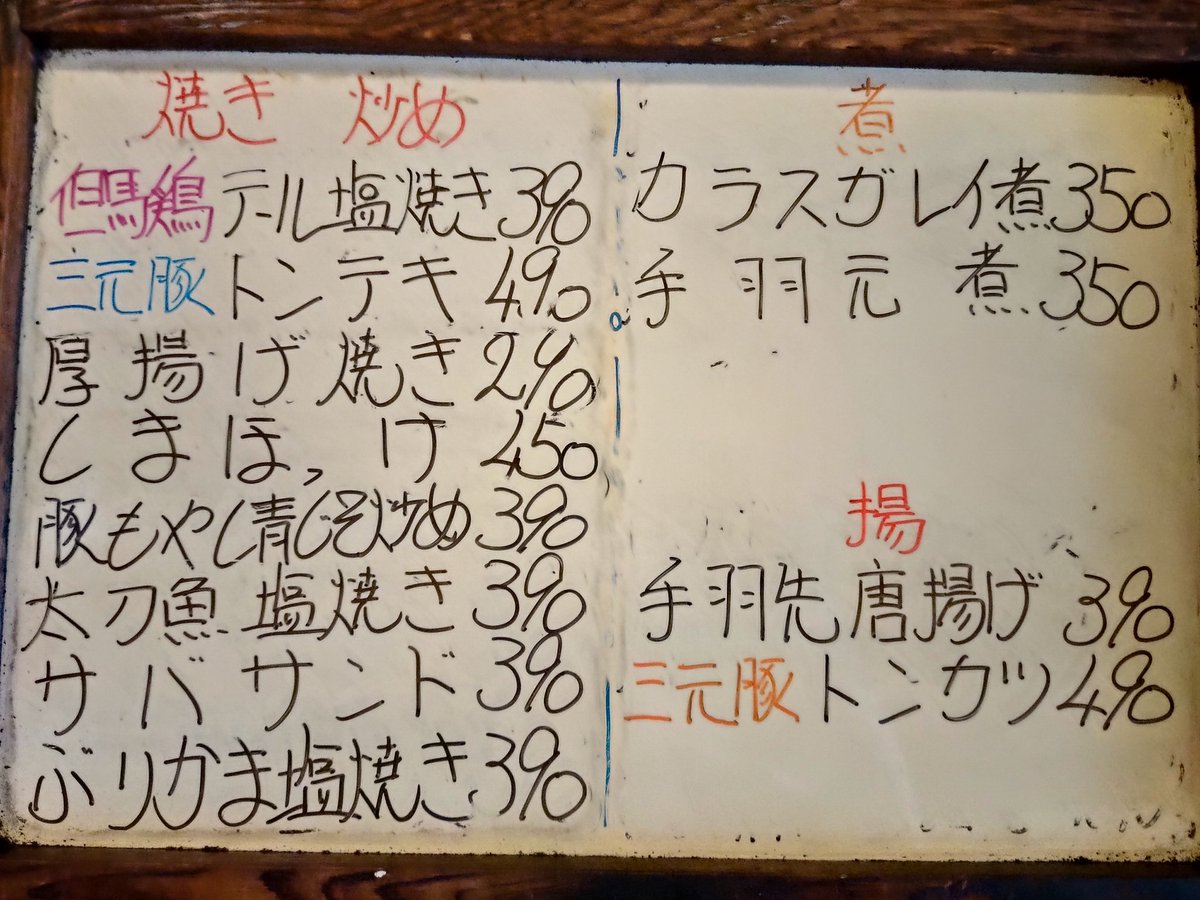 焼き 炒め
但馬鶏テール塩焼き390
三元豚トンテキ490
厚揚げ焼き290
しまほっけ450
豚もやし青じそ炒め390
太刀魚塩焼き390
サバサンド390
ぶりかま塩焼き390
煮
カラスガレイ煮350
手羽元煮350
揚
手羽先唐揚げ390
三元豚トンカツ490